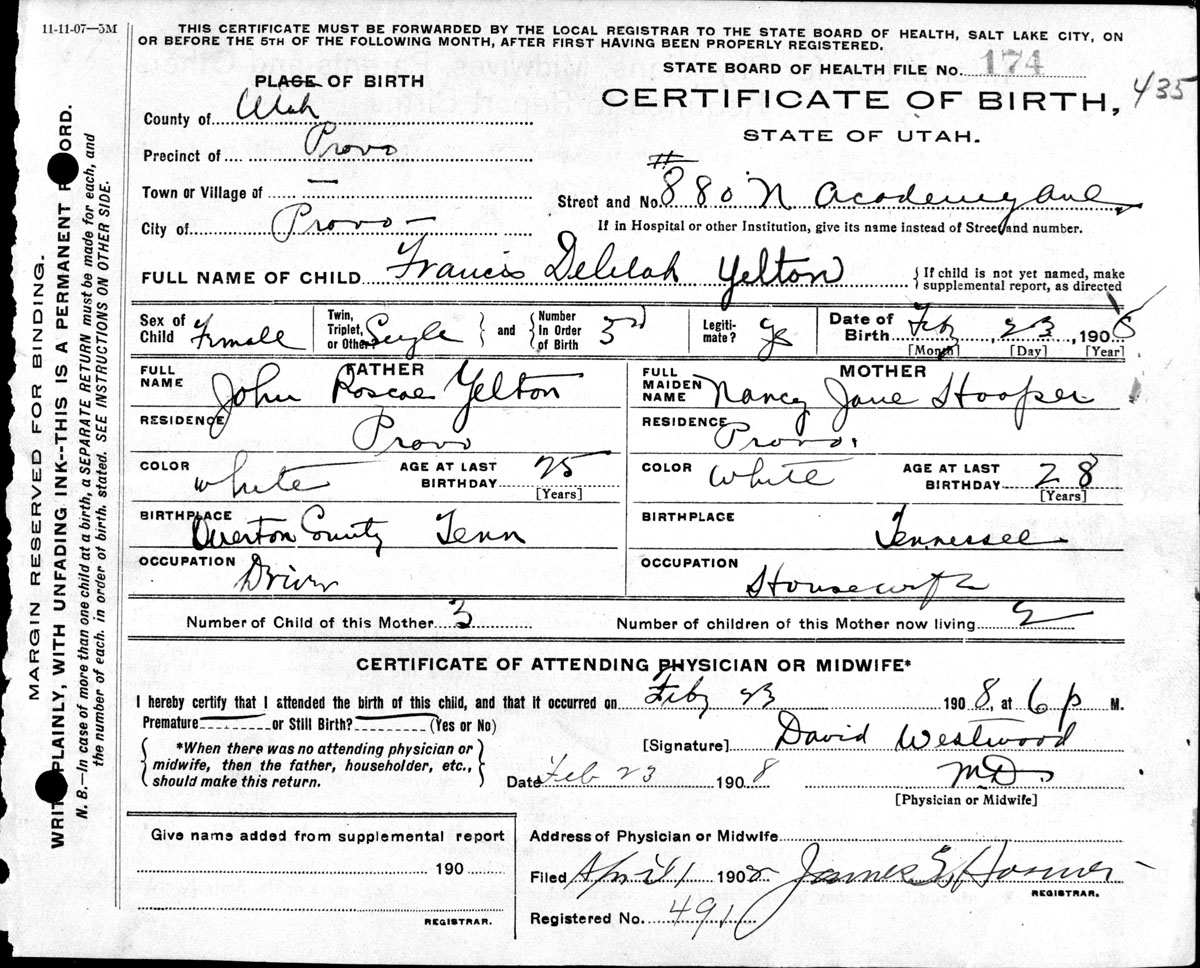 11-11-07—5M
THIS CERTIFICATE MUST BE FORWARDED BY THE LOCAL REGISTRAR TO THE STATE BOARD OF HEALTH, SALT LAKE CITY, ON
OR BEFORE THE 5TH OF THE FOLLOWING MONTH, AFTER FIRST HAVING BEEN PROPERLY REGISTERED.
STATE BOARD OF HEALTH FILE No. 174
435
CERTIFICATE OF BIRTH,
STATE OF UTAH.
PLACE OF BIRTH
County of Utah
Precinct of Provo
Town or Village of —
City of Provo —
Street and No. #880 N Academy Ave
If in Hospital or other Institution, give its name instead of Street and number.
FULL NAME OF CHILD Francis Delilah Yelton
{If child is not yet named, make
supplemental report, as directed
Sex of Child Female
Twin, Triplet, or Other? Single
and
Number In Order of Birth 3rd
Legiti-mate? Yes
Date of Birth Feby 23, 1908
[Month] [Day] [Year]
FATHER
FULL NAME John Roscoe Yelton
RESIDENCE Provo
COLOR White
AGE AT LAST BIRTHDAY 25
[Years]
BIRTHPLACE Overton County Tenn
OCCUPATION Driver
MOTHER
FULL MAIDEN NAME Nancy Jane Hooper
RESIDENCE Provo.
COLOR White
AGE AT LAST BIRTHDAY 28
[Years]
BIRTHPLACE Tennessee
OCCUPATION Housewife
Number of Child of this Mother 3
Number of children of this Mother now living 2
CERTIFICATE OF ATTENDING PHYSICIAN OR MIDWIFE*
I hereby certify that I attended the birth of this child, and that it occurred on Feby 23 1908, at 6 p M.
Premature or Still Birth? (Yes or No)
{*When there was no attending physician or
midwife, then the father, householder, etc.,
should make this return.}
[Signature] David Westwood
Date Feb 23 1908
M.D.
[Physician or Midwife]
Give name added from supplemental report
190
REGISTRAR.
Address of Physician or Midwife
Filed April 1 1908 James E.
REGISTRAR.
Registered No. 491
MARGIN RESERVED FOR BINDING.
WRIT PLAINLY, WITH UNFADING INK--THIS IS A PERMANENT R ORD.
N. B.—In case of more than one child at a birth, a SEPARATE RETURN must be made for each, and
the number of each, in order of birth, stated. SEE INSTRUCTIONS ON OTHER SIDE.